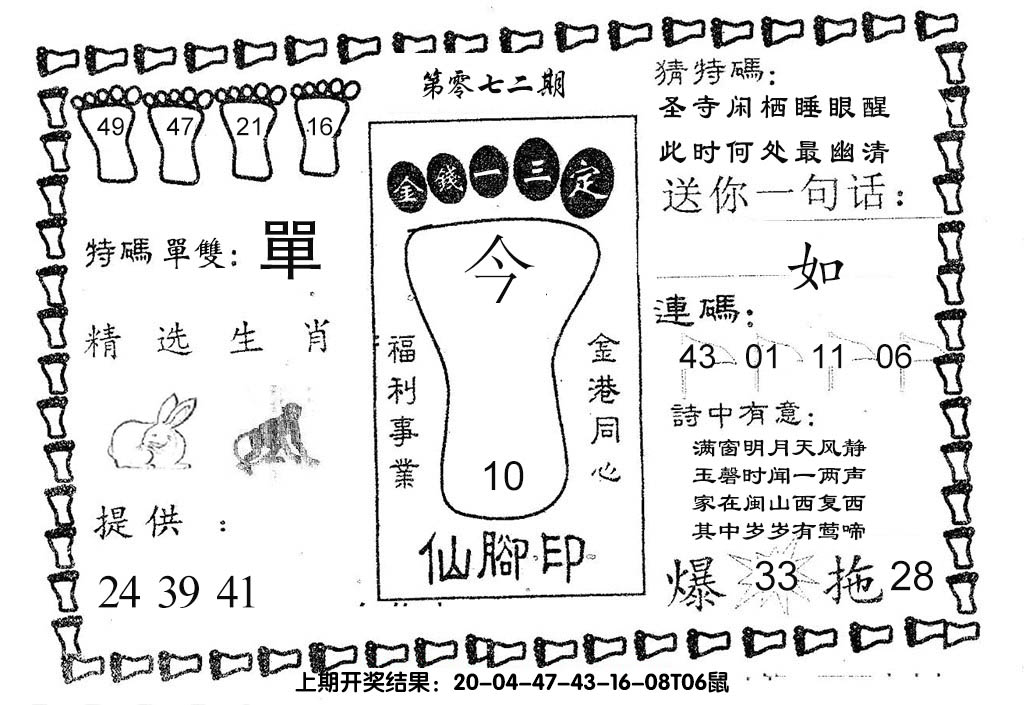 第零七二期
49 47 21 16
特碼單雙：單
精选生肖
提供：
24 39 41
金錢一三定
今
福利事業
金港同心
10
仙腳印
猜特碼：
圣寺闲栖睡眼醒
此时何处最幽清
送你一句话：
如
連碼：
43 01 11 06
詩中有意：
满窗明月天风静
玉磬时闻一两声
家在闽山西复西
其中岁岁有莺啼
爆 33 拖 28
上期开奖结果：20-04-47-43-16-08T06鼠